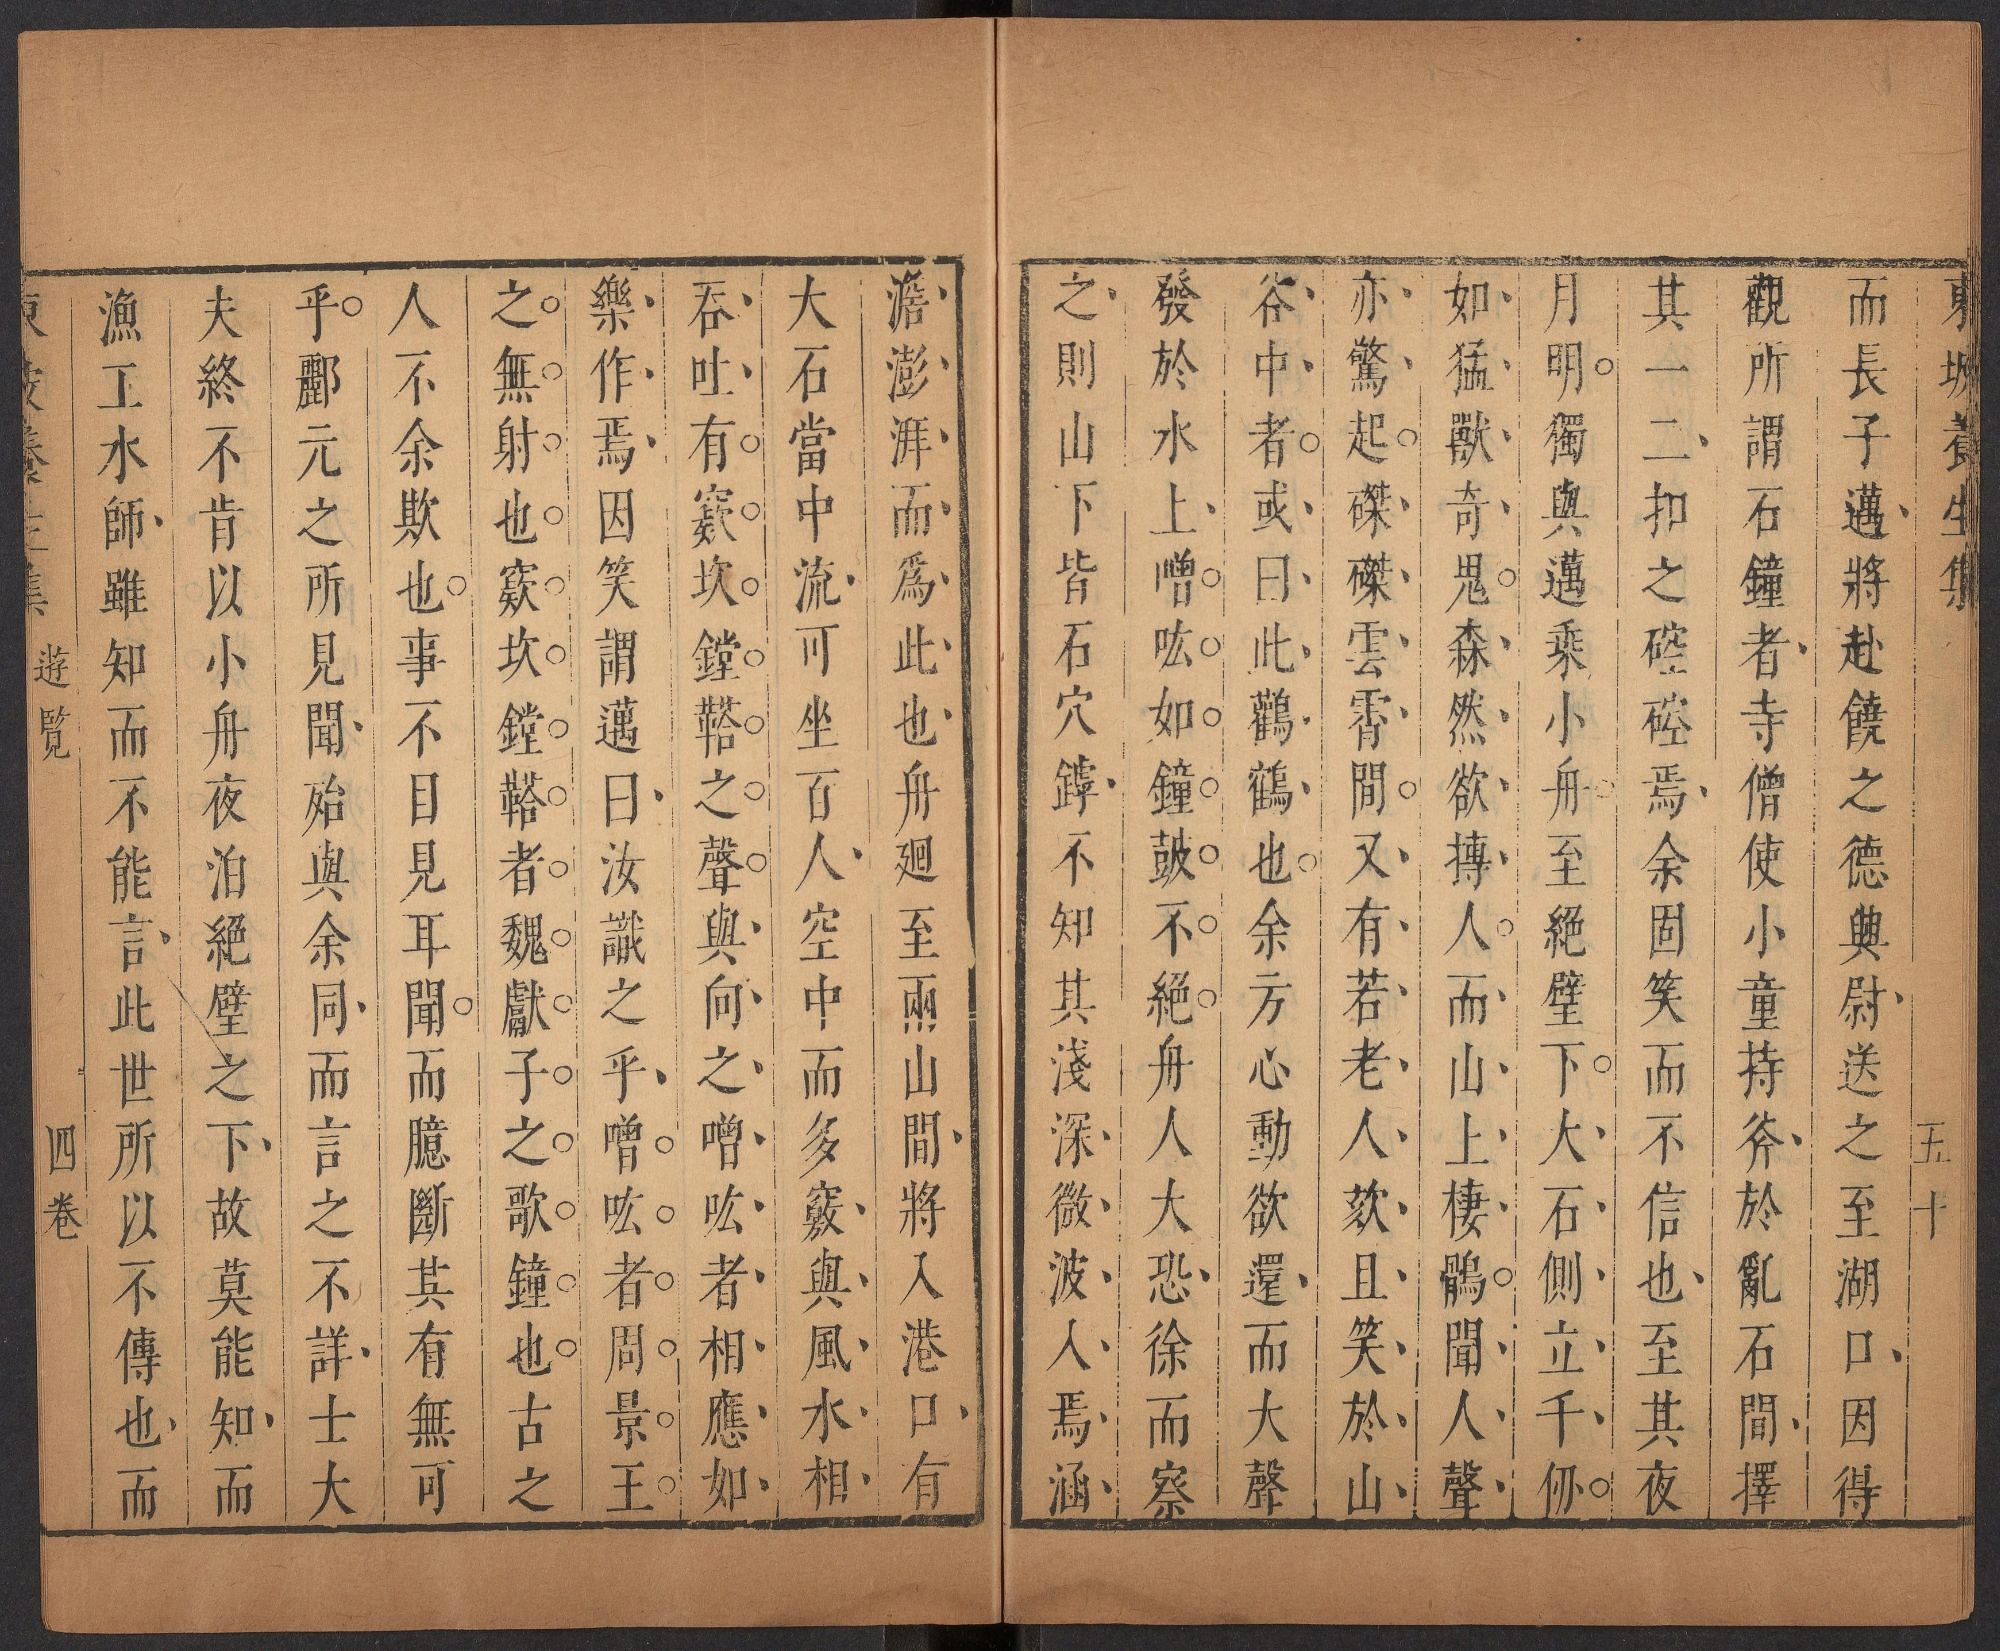 東坡養生集　五十
而長子邁將赴饒之德興尉送之至湖口因得
觀所謂石鐘者寺僧使小童持斧於亂石間擇
其一二扣之硿硿焉余固笑而不信也至其夜
月明獨與邁乘小舟至絕壁下大石側立千仞
如猛獸奇鬼森然欲搏人而山上棲鶻聞人聲
亦驚起磔磔雲霄間又有若老人欬且笑於山
谷中者或曰此鸛鶴也余方心動欲還而大聲
發於水上噌吰如鐘鼓不絕舟人大恐徐而察
之則山下皆石穴罅不知其淺深微波入焉涵
澹澎湃而爲此也舟廻至兩山間將入港口有
大石當中流可坐百人空中而多竅與風水相
吞吐有窾坎鏜鞳之聲與向之噌吰者相應如
樂作焉因笑謂邁曰汝識之乎噌吰者周景王
之無射也窾坎鏜鞳者魏獻子之歌鐘也古之
人不余欺也事不目見耳聞而臆斷其有無可
乎酈元之所見聞殆與余同而言之不詳士大
夫終不肯以小舟夜泊絕壁之下故莫能知而
漁工水師雖知而不能言此世所以不傳也而
東坡養生集　遊覽　四卷